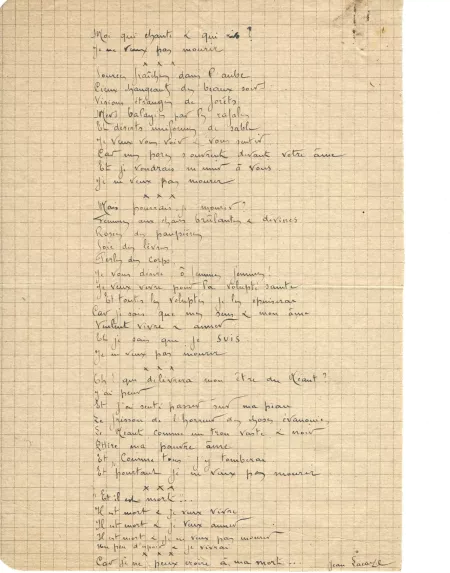 Moi qui chante & qui ris ?
Je ne veux pas mourir
x x x
Sources fraîches dans l'aube
Cieux changeants des beaux soirs
Visions étranges de forêts
Mers balayées par les rafales
Et déserts uniformes de sable
Je veux vous voir & vous sentir
Car mes pores s'ouvrent devant votre âme
Et je voudrais m'unir à vous
Je ne veux pas mourir
x x x
Mais pourrais-je mourir ?
Femmes aux chairs brûlantes & divines
Roses des paupières
Soie des lèvres
des corps
Je vous désire ô femmes femmes !
Je veux vivre pour la volupté sainte
Et toutes les voluptés je les épuiserai
Car je sais que mes sens & mon âme
Veulent vivre & aimer
Et je sais que je SUIS
Je ne veux pas mourir
x x x
Oh ! qui délivrera mon être du Néant ?
J'ai peur
Et j'ai senti passer sur ma peau
Le frisson de l'horreur des choses évanouies
Le Néant comme un trou vaste & noir
Attire ma pauvre âme
Et, Comme tous j'y tomberai
Et pourtant je ne veux pas mourir
x x x
"Et il est mort !..
Il est mort & je veux vivre
Il est mort & je veux aimer
Il est mort & je ne veux pas mourir
un peu d'espoir & je vivrai
x x x
Car je ne peux croire à ma mort...
Jean